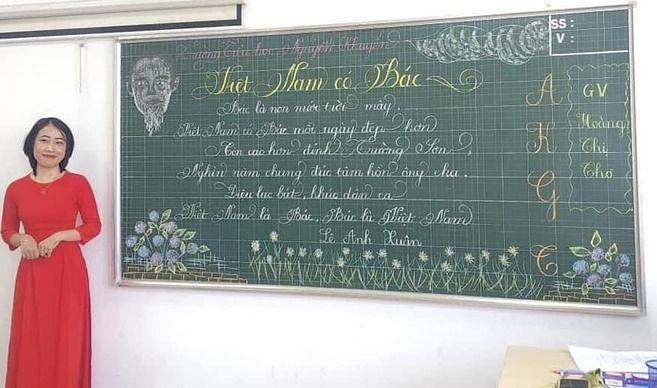 Trường Tiểu học Nguyễn Khuyến
SS :
V :
Việt Nam có Bác
Bác là non nước trời mây,
Việt Nam có Bác mỗi ngày đẹp hơn
Còn cao hơn đỉnh Trường Sơn,
Nghìn năm chung đúc tâm hồn ông cha.
Điệu lục bát, khúc dân ca
Việt Nam là Bác, Bác là Việt Nam
Lê Anh Xuân
A
K
G
C
GV
Hoàng
Thị
Thơ